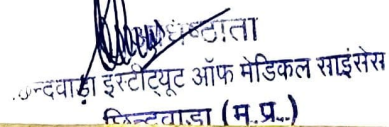 अधिष्ठाता
छिन्दवाड़ा इंस्टीट्यूट ऑफ मेडिकल साइंसेस
छिन्दवाड़ा (म.प्र.)